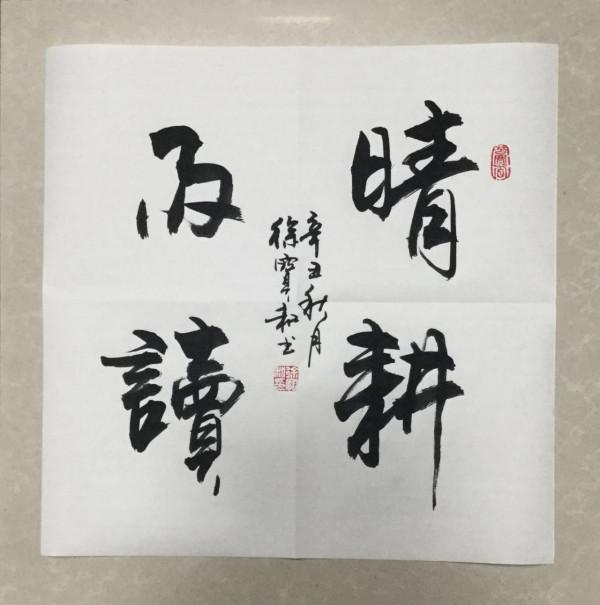 晴耕
雨讀
辛丑秋月
徐寶書